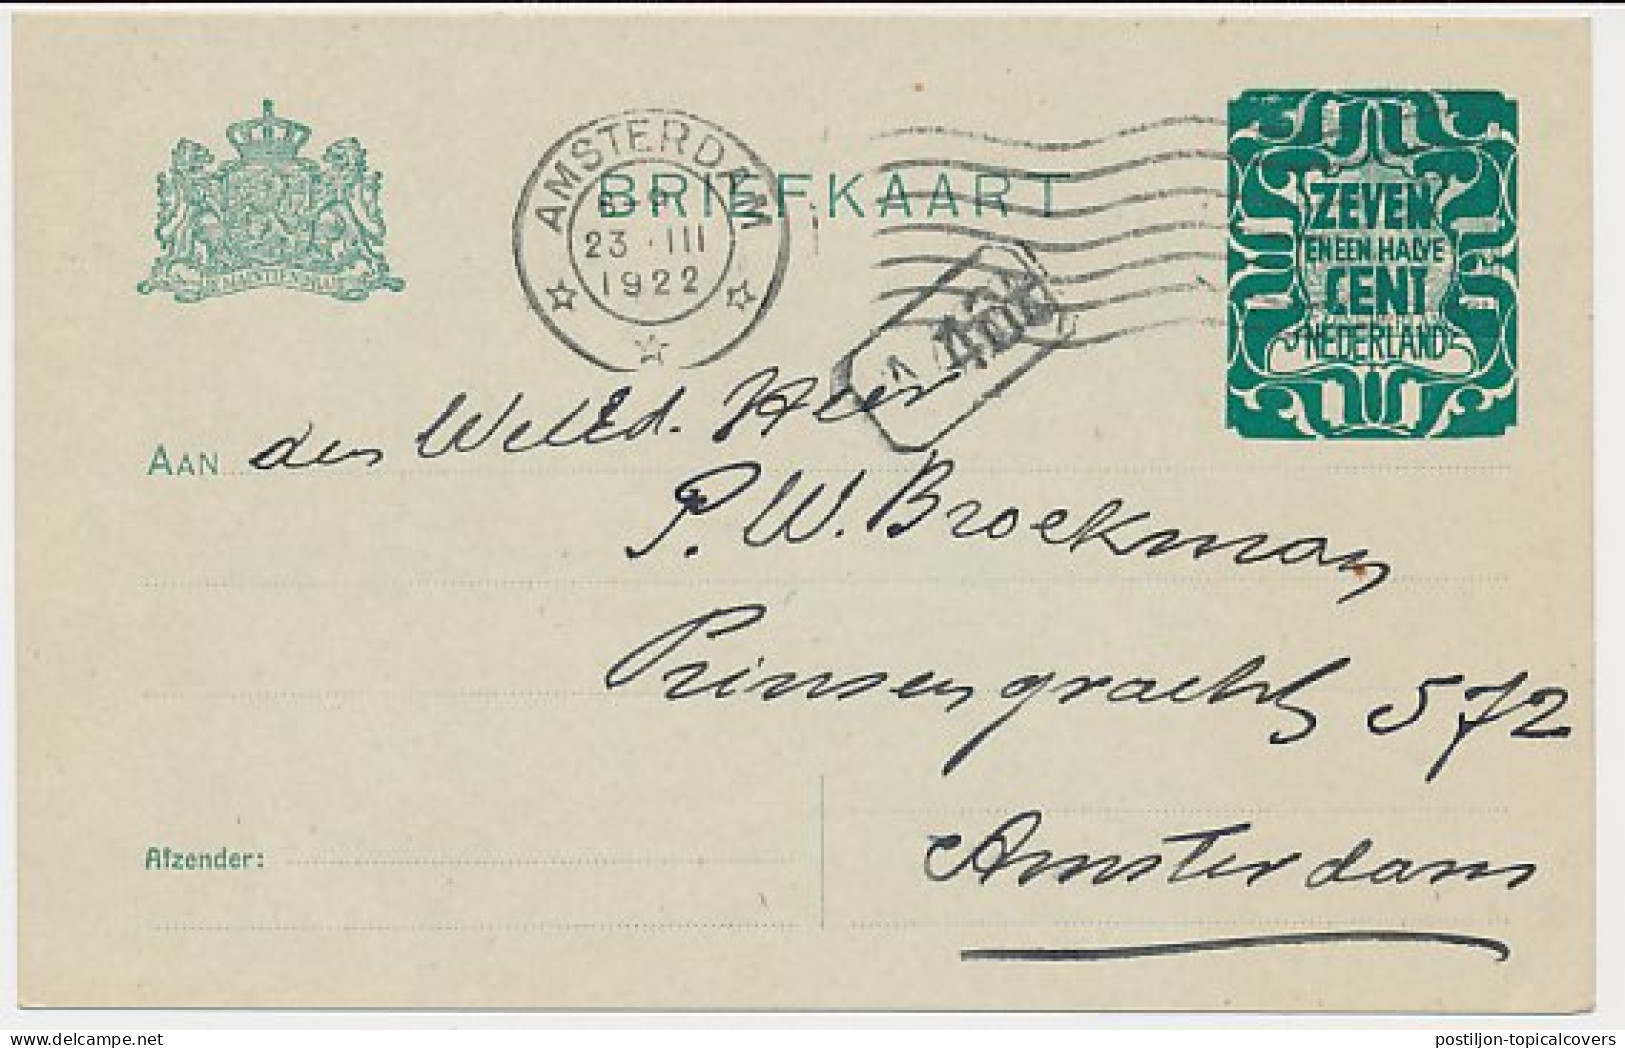 AMSTERDAM
23 · III
1922
BRIEFKAART
ZEVEN
EN EEN HALVE
CENT
NEDERLAND
JE MAINTIENDRAI
AAN den WelEd. Heer
P. W. Broekman
Prinsengracht 572
Amsterdam
Afzender:
postiljon-topicalcovers
delcampe.net